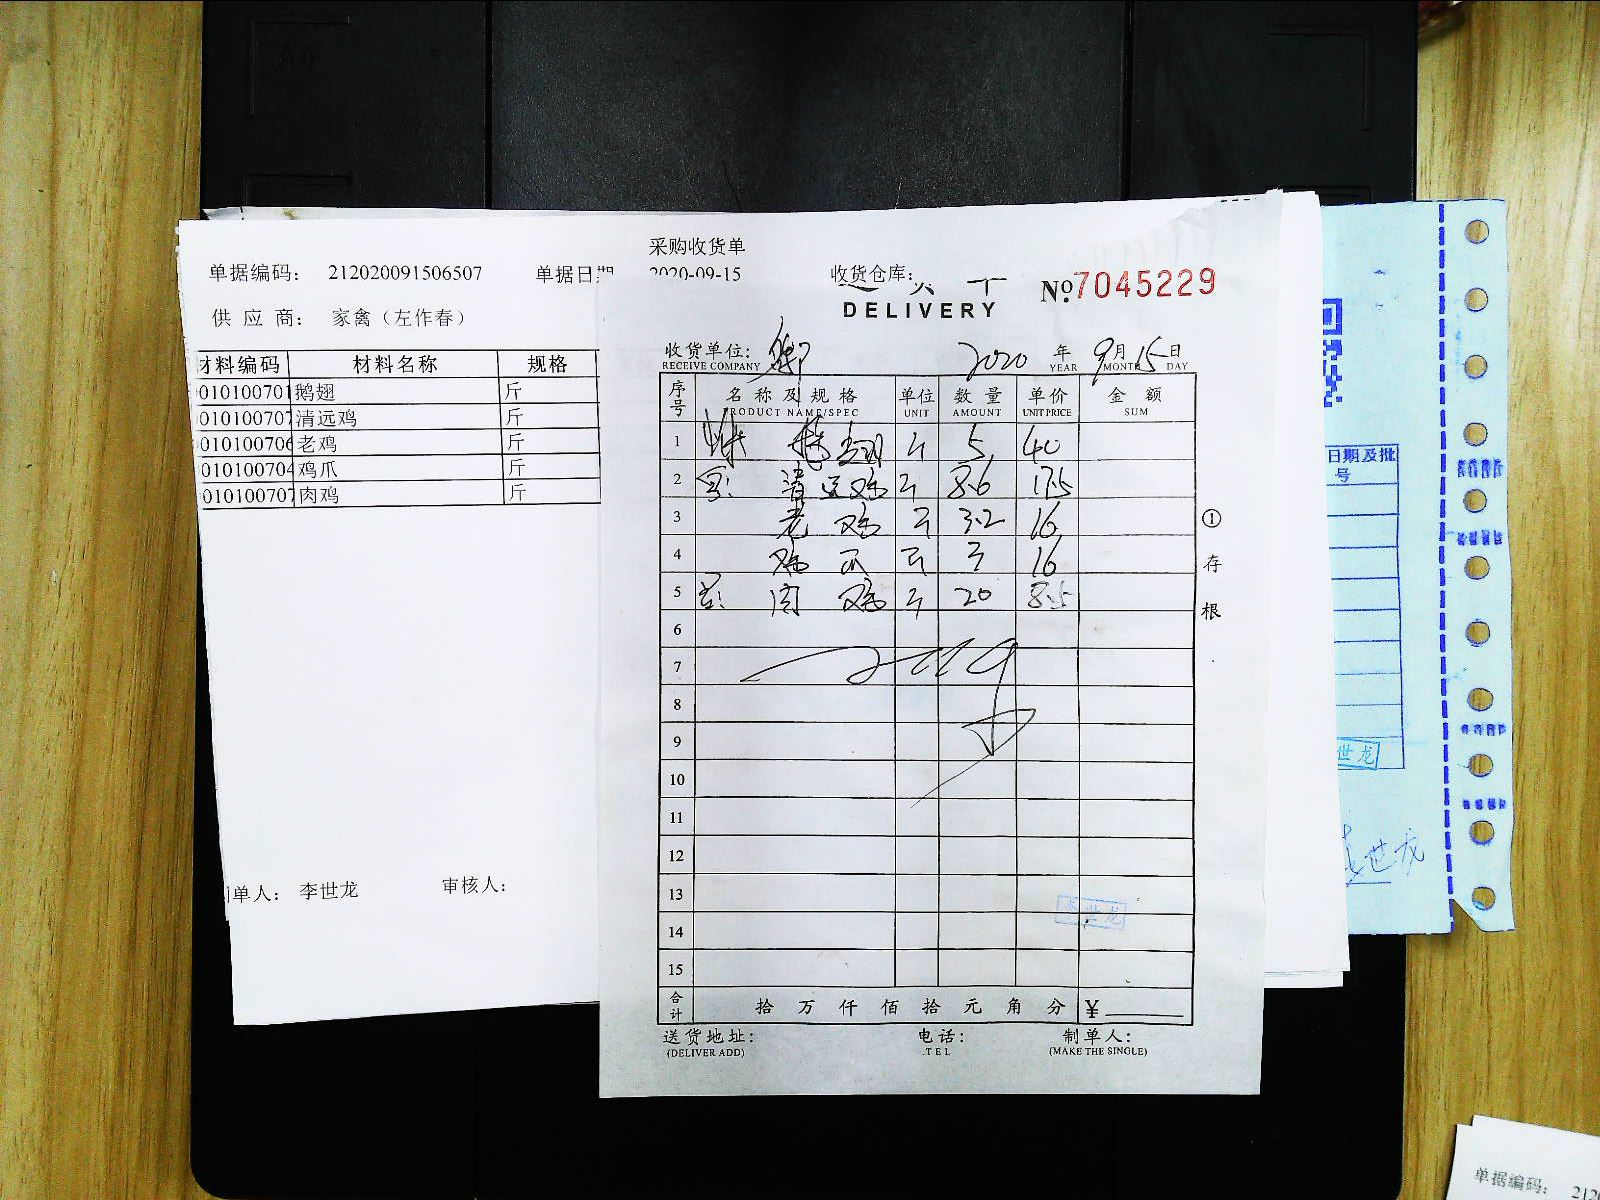 采购收货单
单据编码: 212020091506507 单据日期 2020-09-15 收货仓库:
供 应 商: 家禽（左作春）
材料编码 材料名称 规格
010100701 鹅翅 斤
010100707 清远鸡 斤
010100706 老鸡 斤
010100704 鸡爪 斤
010100707 肉鸡 斤
制单人: 李世龙 审核人:
DELIVERY
№7045229
收货单位:
RECEIVE COMPANY
2020 年 9 月 15 日
YEAR MONTH DAY
序号 名称及规格 单位 数量 单价 金额
PRODUCT NAME/SPEC UNIT AMOUNT UNIT PRICE SUM
1 鹅翅 斤 5 40
2 清远鸡 斤 8.6 17.5
3 老鸡 斤 3.2 16
4 鸡爪 斤 3 16
5 肉鸡 斤 20 8.5
6
7
8
9
10
11
12
13
14
15
李世龙
合计 拾 万 仟 佰 拾 元 角 分 ¥
送货地址: 电话: 制单人:
(DELIVER ADD) TEL (MAKE THE SINGLE)
① 存根
日期及批号
世龙
世龙
单据编码: 212